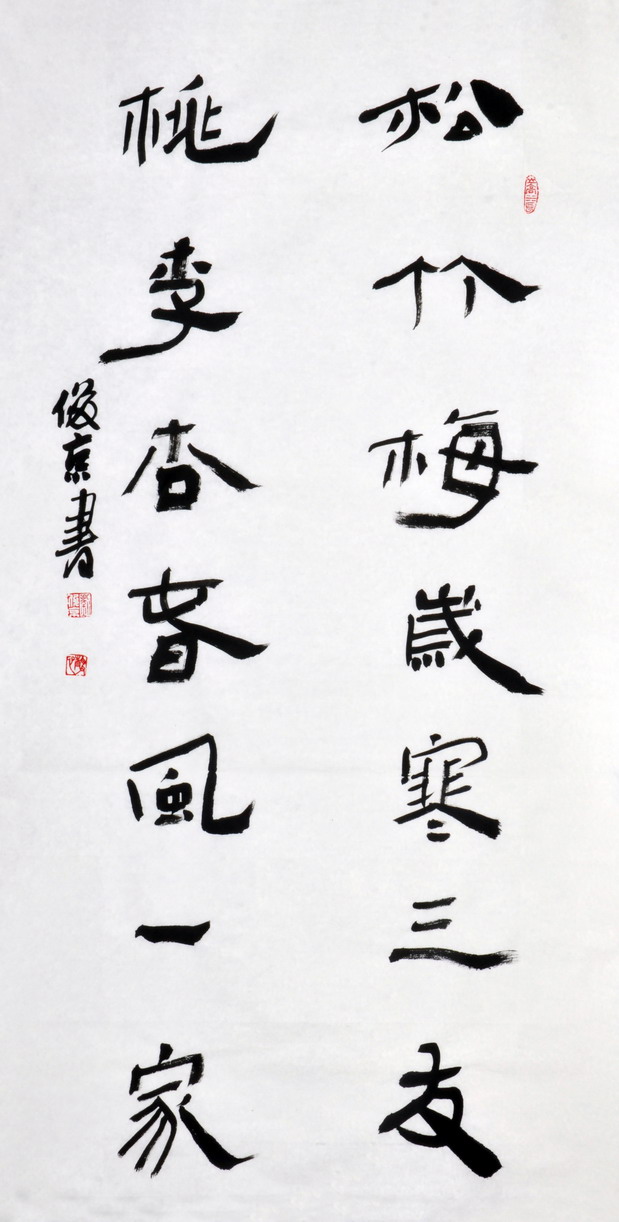 松竹梅歲寒三友
桃李杏春風一家
俊京書